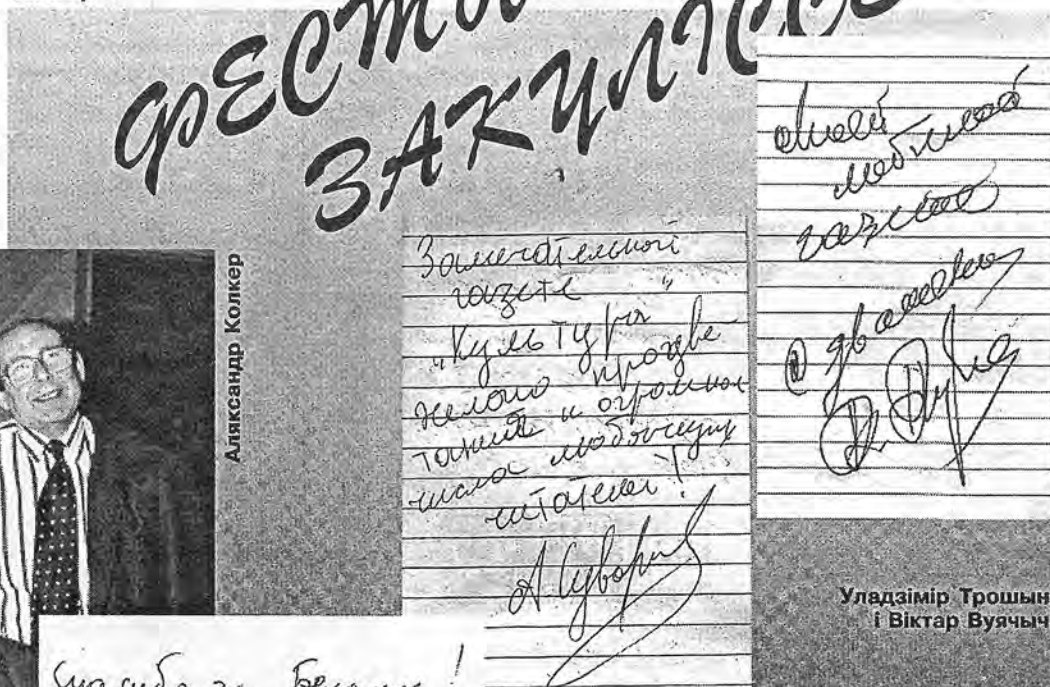 ФЕСТЫ
ЗАКУЛІС
Аляксандр Колкер
Замечательной
газете
„Культура“
желаю процве
тания и огромного
числа
читателей!
моей
любимой
газете
с уважением
Уладзімір Трошын
і Віктар Вуячыч
Спасибо за